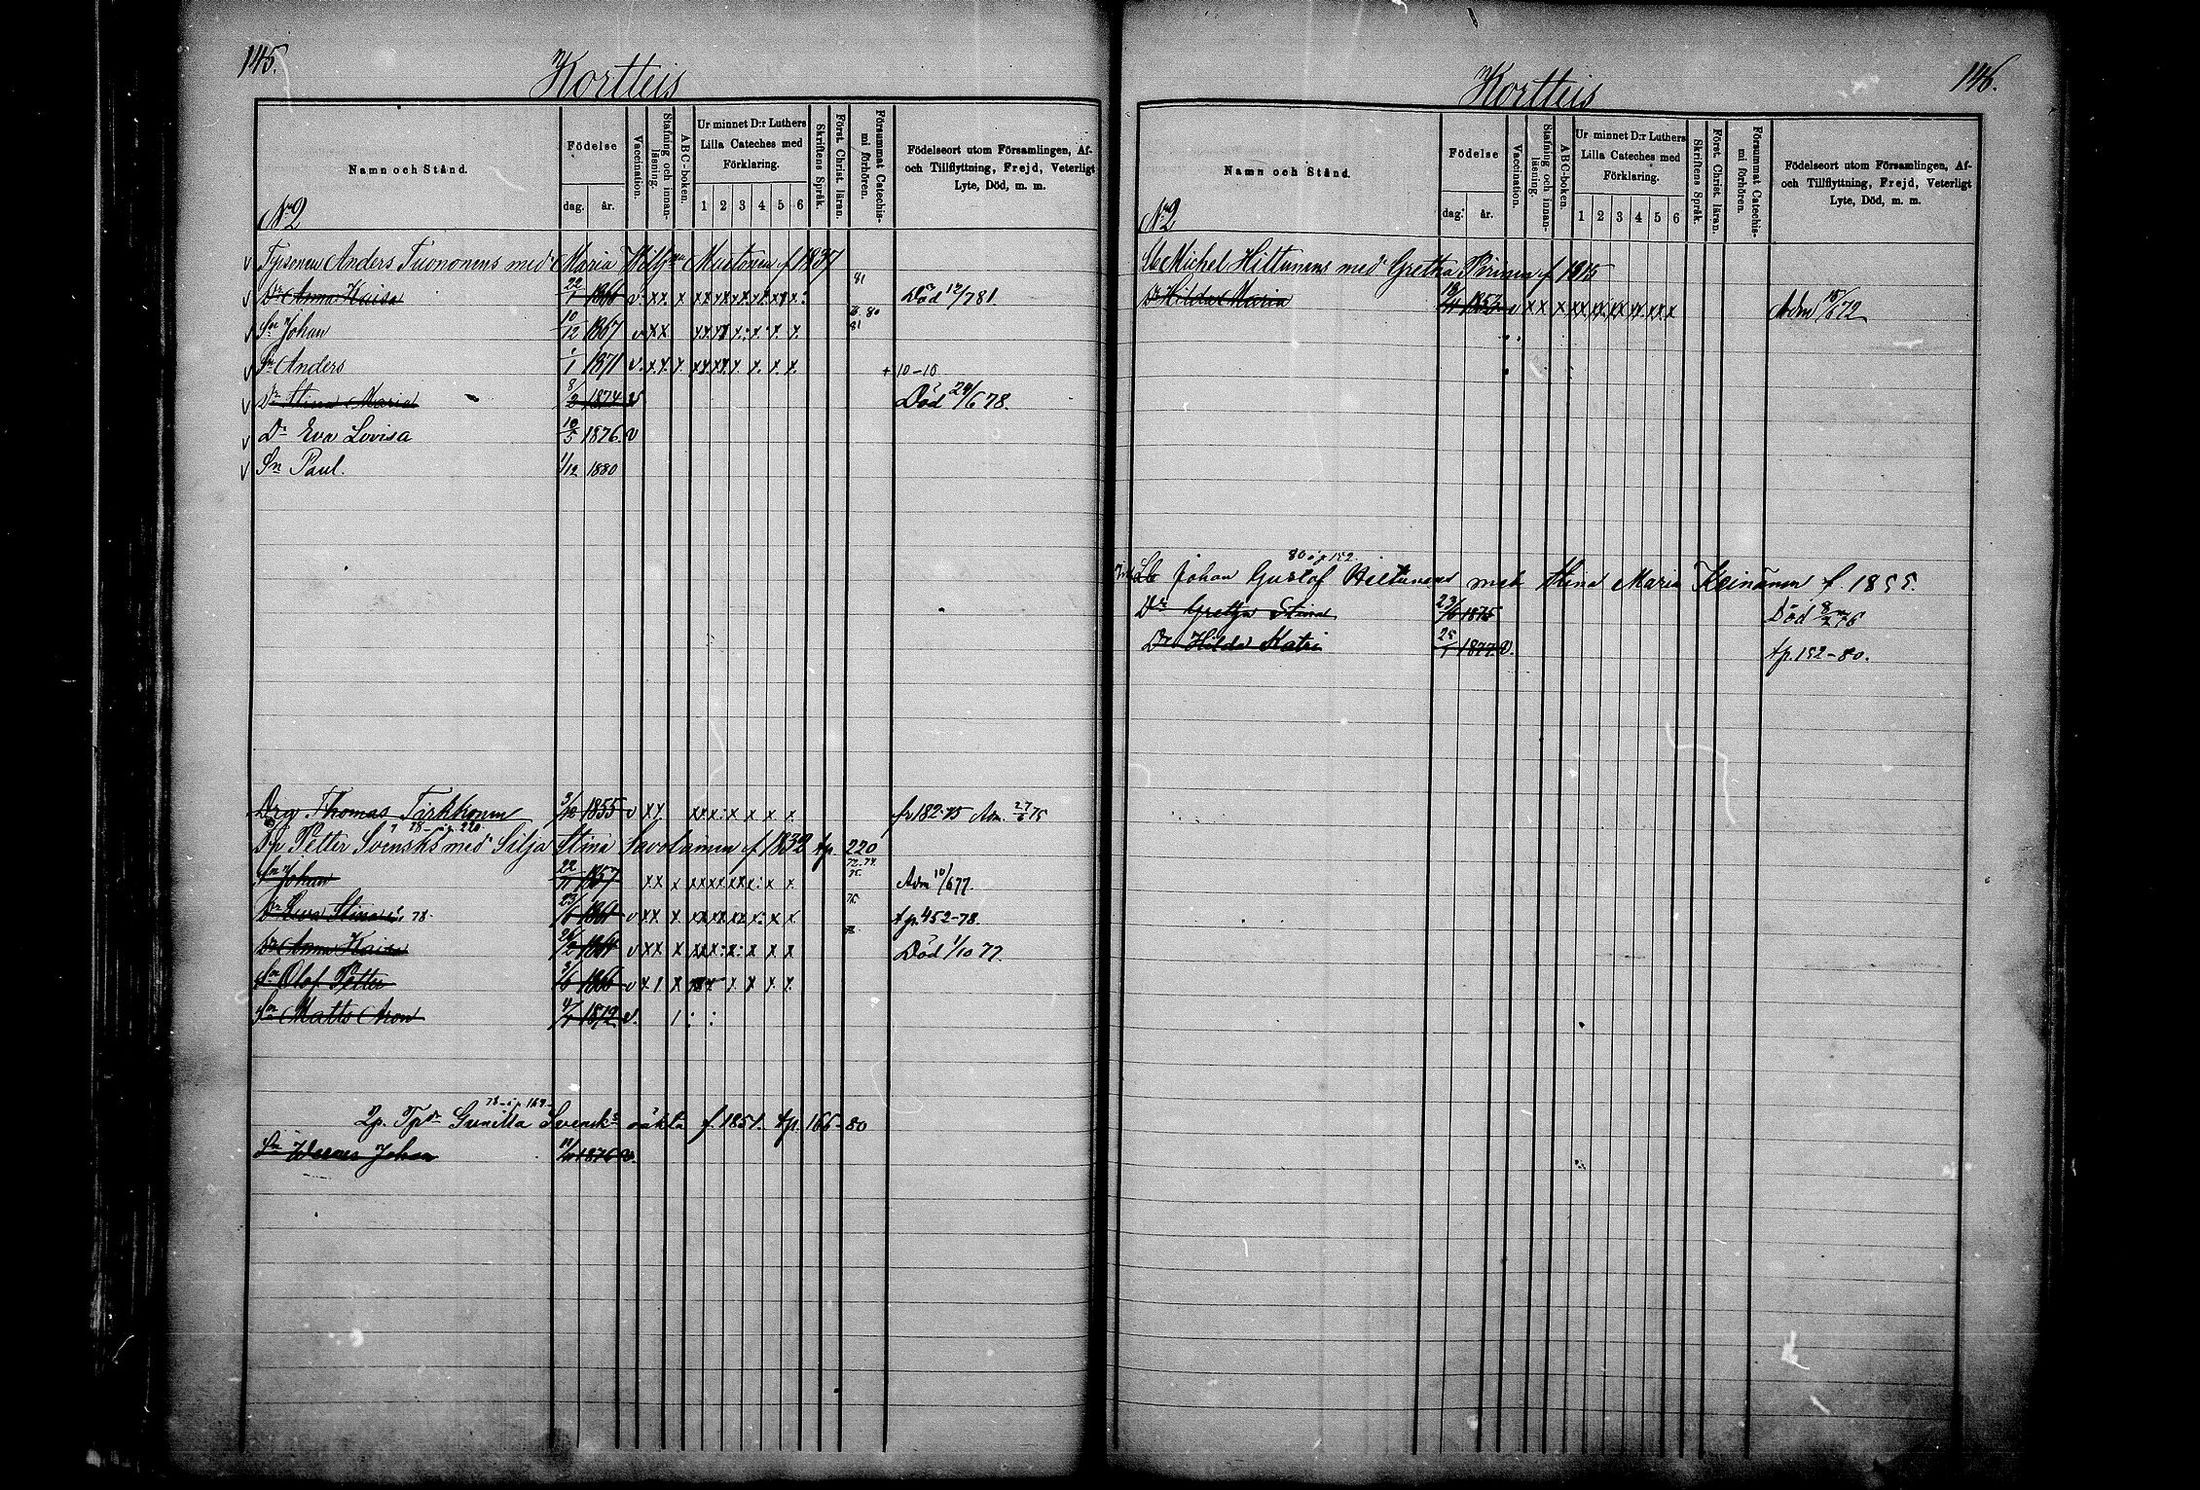 145.
Kortteis
Namn och Stånd.
Födelse
dag. år.
Vaccination.
Stafning och innanläsning.
ABC-boken.
Ur minnet D:r Luthers Lilla Cateches med Förklaring.
1 2 3 4 5 6
Skriftens Språk.
Först. Christ. läran.
Försummat Catechismi förhören.
Födelseort utom Församlingen, Af- och Tillflyttning, Frejd, Veterligt Lyte, Död, m. m.
No 2
Anders Tuononens med Maria Mustonen f 1837
Dr Anna Kaisa 22/1 v xx x 81 Död 12/7 81.
Sn Johan 10/12 1867 v xx 80 81
Sn Anders 1/1 1871 v x x x + 10-10
Dr Stina Maria 8/2 1874 v Död 24/6 78.
Dr Eva Lovisa 10/5 1876. v
Sn Paul. 1/12 1880
Drg Thomas Tirkkonen 3/12 1855 v xx fr 182-75 Adm. 27/6 75
78 i p 220
Petter Svensks med Silja Stina Savolainen f 1832 tp. 220
Sn Johan 22/11 1857 xx x 72. 74. 75. Adm 10/6 77.
Dr Stina 78. v xx x 75 tp. 452-78.
Dr Anna Kaisa v xx x Död 1/10 77.
Sn Olof Petter 3/6 1866 v
Sn Matts Aron 4/7 1872 v.
78 i p 164
Gunilla Svensks oäkta f. 1851. tp. 166-80
Sn Johan 1876 v.
146.
Kortteis
Namn och Stånd.
Födelse
dag. år.
Vaccination.
Stafning och innanläsning.
ABC-boken.
Ur minnet D:r Luthers Lilla Cateches med Förklaring.
1 2 3 4 5 6
Skriftens Språk.
Först. Christ. läran.
Försummat Catechismi förhören.
Födelseort utom Församlingen, Af- och Tillflyttning, Frejd, Veterligt Lyte, Död, m. m.
No 2
Lb Michel Hiltunens med Gretha Piirainen f 1815
Dr Hilda Maria 18/11 1853 v xx x Adm 18/6 72
80 i p 152
Lb Johan Gustaf Hiltunens med Stina Maria Keinänen f. 1855.
Dr Gretha Stina 23/6 1875 Död 8/2 76
Dr Hilda Katri 25/1 1877 v. tp. 152-80.